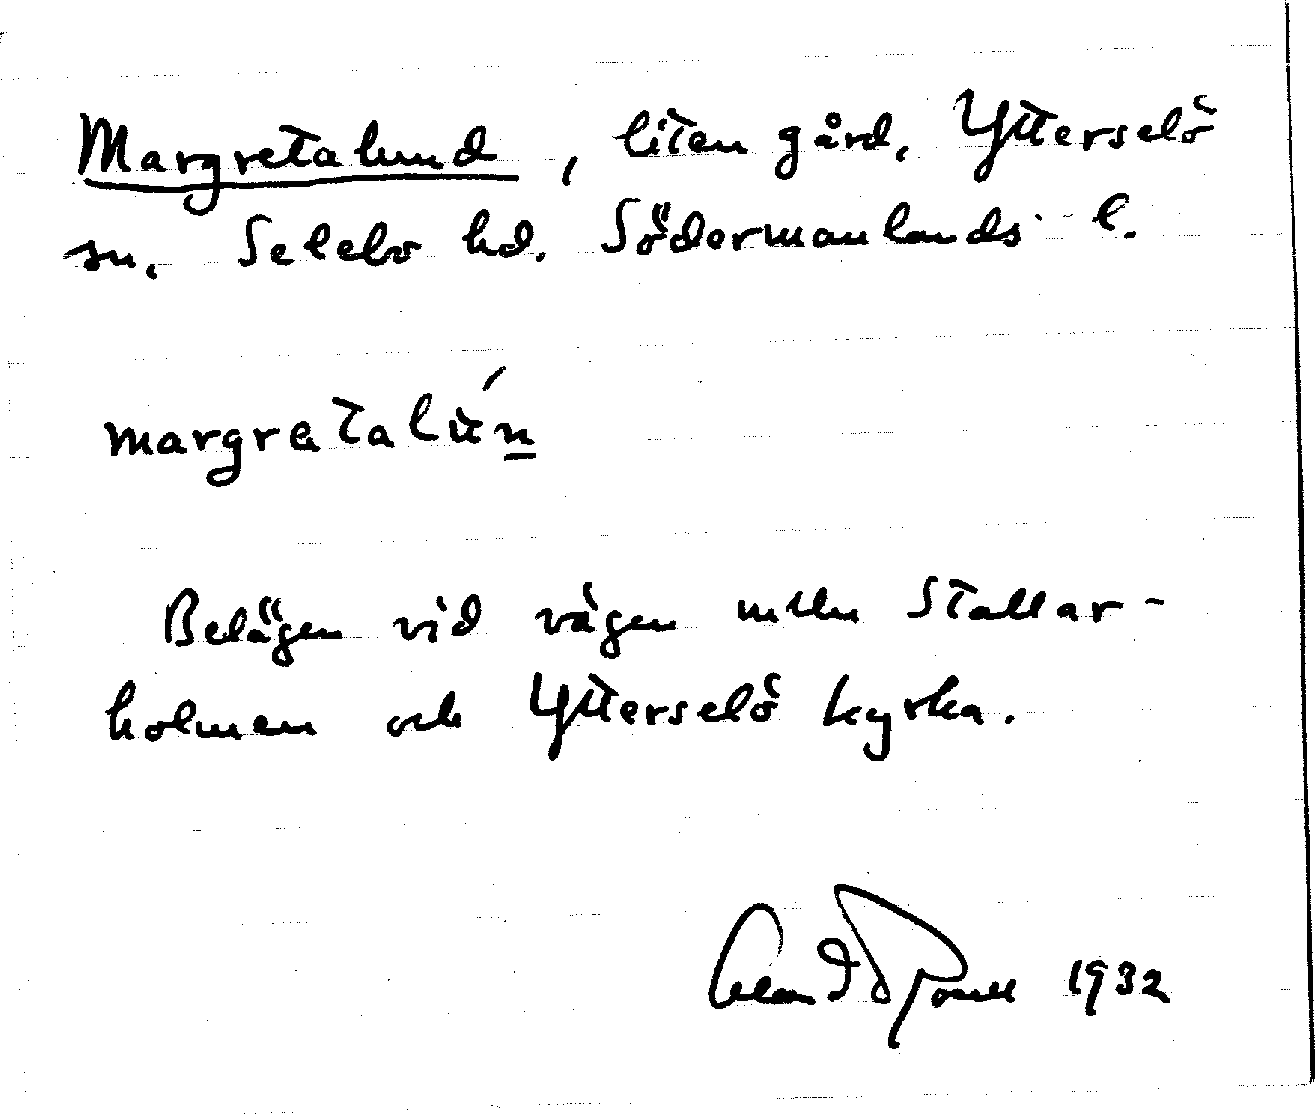 Margretalund, liten gård, Ytterselö
sn. Selebo hd. Södermanlands l.
margretalún
Belägen vid vägen mllm Stallar-
holmen och Ytterselö kyrka.
1932